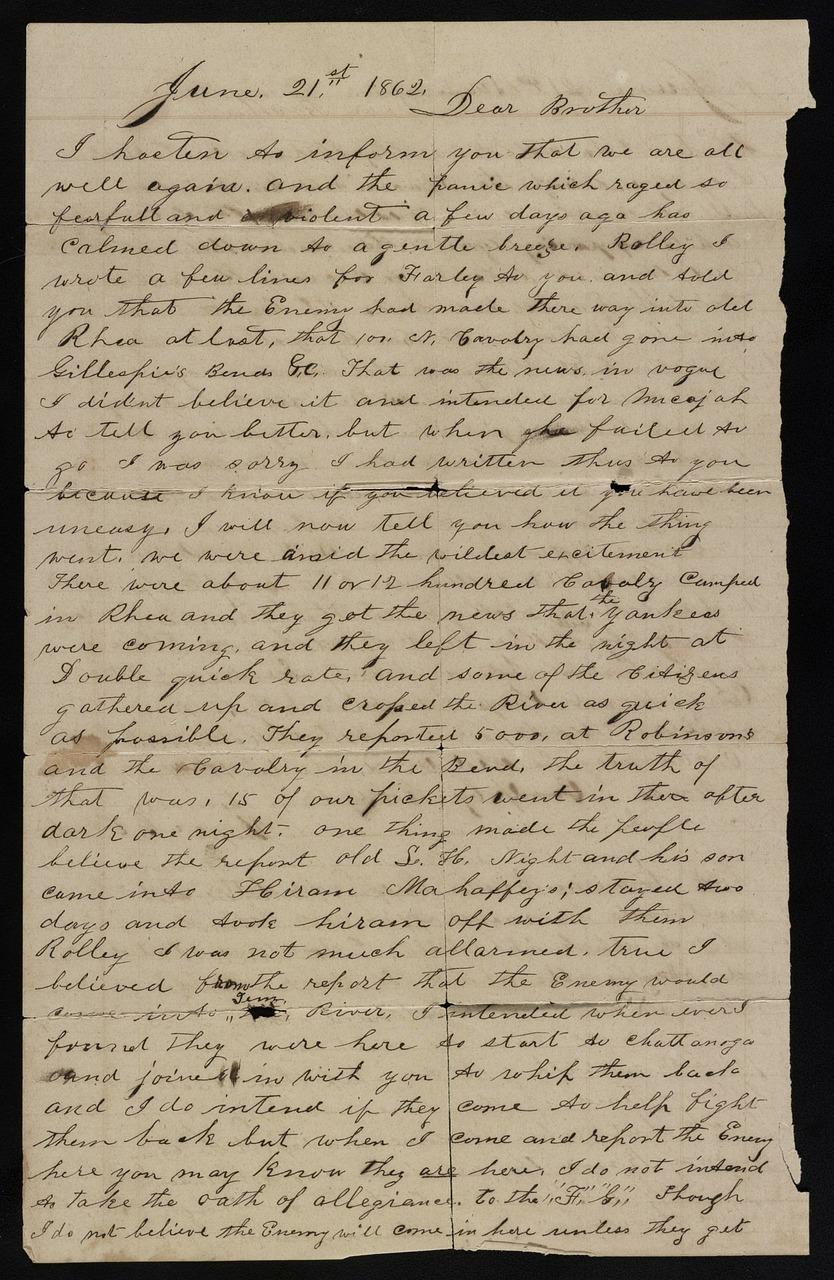 June. 21.st 1862.
Dear Brother
I hasten to inform you that we are all
well again. and the panic which raged so
fearfull and violent a few days ago has
Calmed down to a gentle breeze. Rolley I
wrote a few lines for Farley to you and told
you that the Enemy had made there way into old
Rhea at last, that 100. N. Cavalry had gone into
Gillespie's Bends &C. That was the news in vogue
I didnt believe it and intended for Micajah
to tell you better, but when he failed to
go I was sorry I had written thus to you
because I know if you believed it you have been
uneasy. I will now tell you how the thing
went. we were amid the wildest excitement
There were about 11 or 12 hundred Cavalry Camped
in Rhea and they got the news that the Yankees
were coming, and they left in the night at
Double quick rate, and some of the Citizens
gathered up and crossed the River as quick
as possible. They reported 5000, at Robinson's
and the Cavalry in the Bend, the truth of
that was, 15 of our pickets went in there after
dark one night. one thing made the people
believe the report old S. H. Night and his son
came into Hiram Mahaffey's; stayed two
days and took hiram off with them
Rolley I was not much allarmed. true I
believed from the report that the Enemy would
come into "Tenn. River, I intended when ever I
found they were here to start to Chattanoga
and joined in with you to whip them back
and I do intend if they come to help fight
them back but when I come and report the Enemy
here you may know they are here. I do not intend
to take the oath of allegiance. to the "F. C." Though
I do not believe the Enemy will come in here unless they get